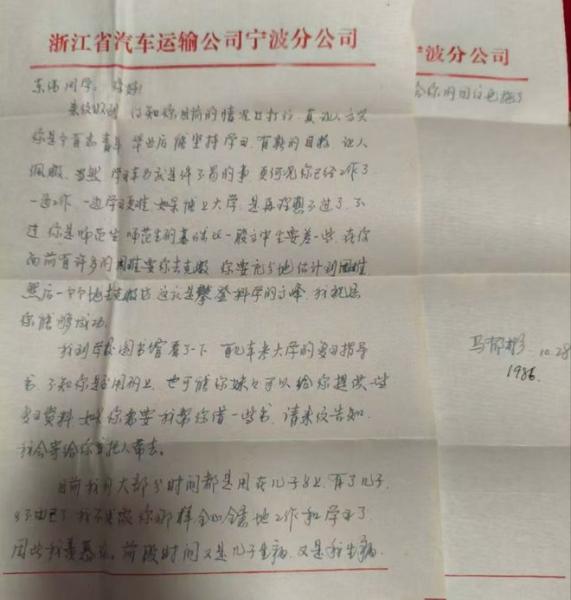 浙江省汽车运输公司宁波分公司
同学: 你好!
来信收到 得知你目前的情况及打算
你是个有志青年 毕业后能坚持学习 有新的目标 让人
佩服 当然 学习本来就是件不易的事 更何况你已经工作了
一边工作 一边学习更难 如果能上大学 是再好不过了 不
过 你是师范生 师范生的基础比一般高中生要差一些 在你
面前有许多的困难要你去克服 你要充分地估计到困难
然后一个个地去克服 这就是攀登科学的高峰 我祝愿
你能够成功
我到学校图书馆看了一下 有几本考大学的复习指导
书 不知你是否用得上 也可能你妹妹可以给你提供一些
复习资料 如果你需要我帮你借一些书 请来信告知
我会寄给你或托人带去。
目前我的大部分时间都是用在儿子身上 有了儿子
我不能像你那样全心全意地工作和学习了
因此我羡慕你 前段时间又是儿子生病 又是我生病
宁波分公司
给你的回信
马 10.28
1986.